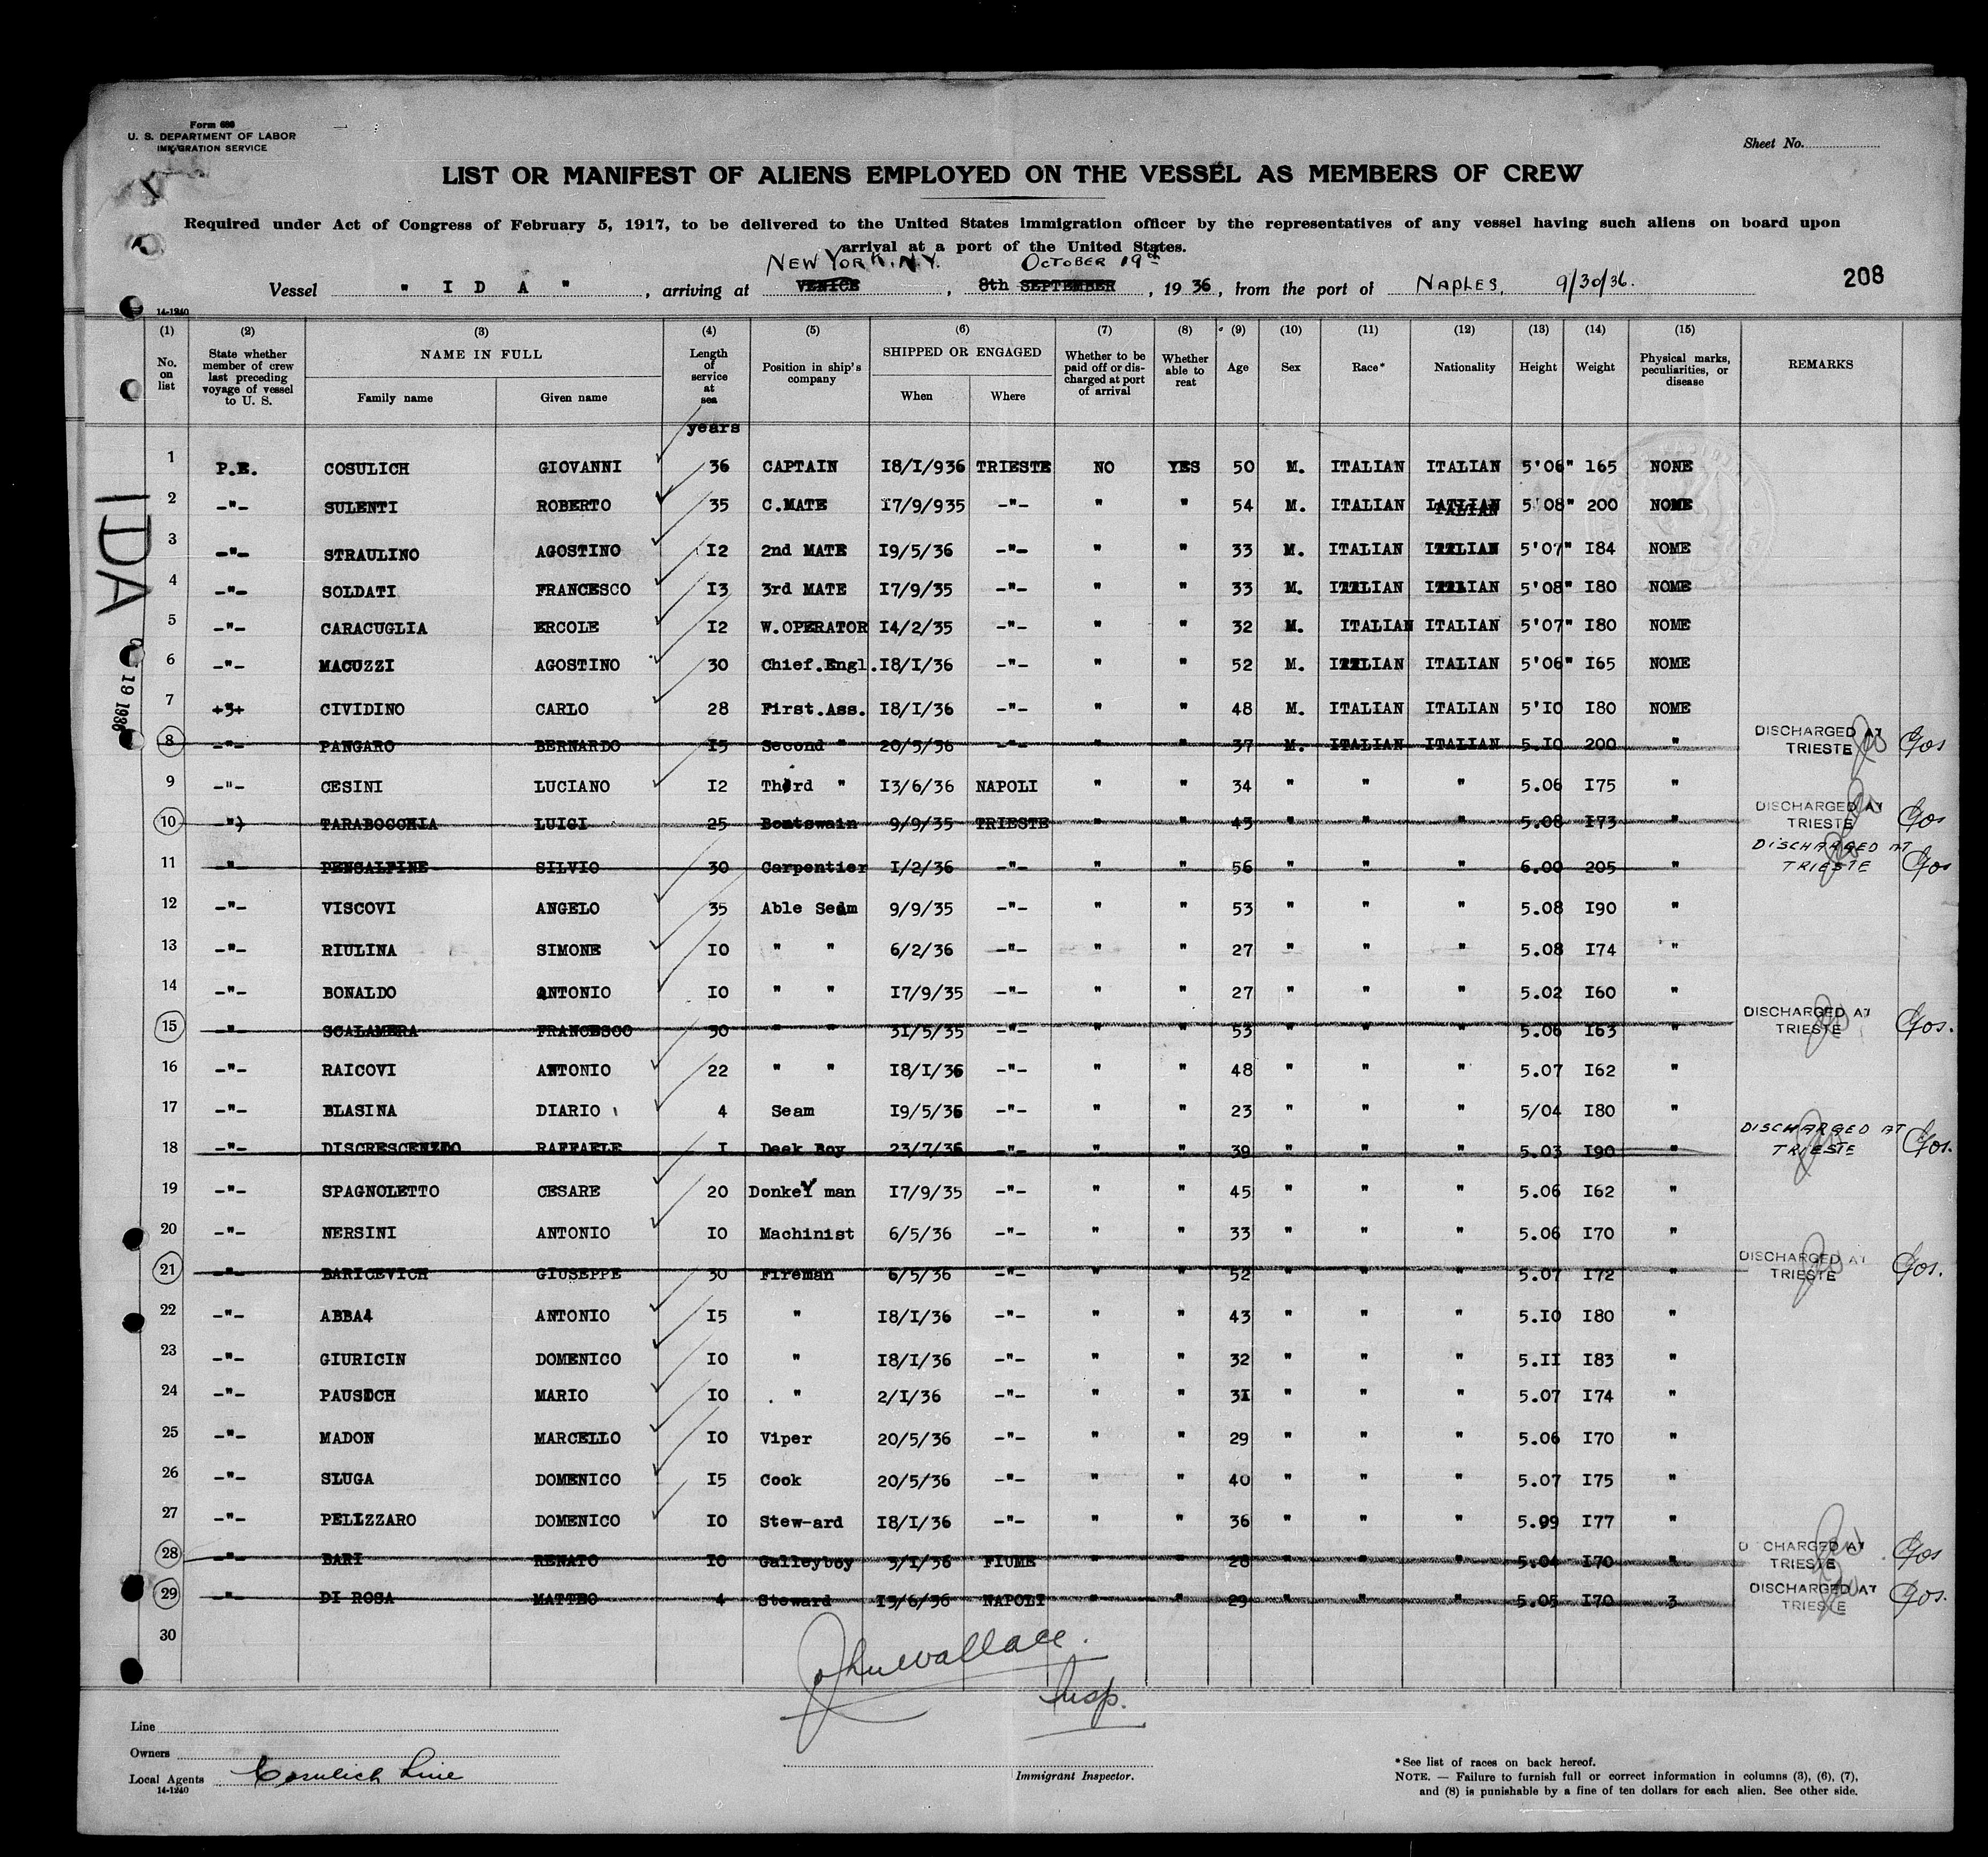 Form 686
U. S. DEPARTMENT OF LABOR
IMMIGRATION SERVICE
Sheet No.
LIST OR MANIFEST OF ALIENS EMPLOYED ON THE VESSEL AS MEMBERS OF CREW
Required under Act of Congress of February 5, 1917, to be delivered to the United States immigration officer by the representatives of any vessel having such aliens on board upon
arrival at a port of the United States.
NEW YORK. N.Y. OCTOBER 19th
Vessel " I D A " , arriving at VENICE , 8th SEPTEMBER , 19 36 , from the port of NAPLES, 9/30/36. 208
14-1240
(1) (2) (3) (4) (5) (6) (7) (8) (9) (10) (11) (12) (13) (14) (15)
No. on list State whether member of crew last preceding voyage of vessel to U. S. NAME IN FULL Family name Given name Length of service at sea Position in ship's company SHIPPED OR ENGAGED When Where Whether to be paid off or discharged at port of arrival Whether able to read Age Sex Race* Nationality Height Weight Physical marks, peculiarities, or disease REMARKS
years
1 P.E. COSULICH GIOVANNI 36 CAPTAIN I8/I/936 TRIESTE NO YES 50 M. ITALIAN ITALIAN 5'06" 165 NONE
2 -"- SULENTI ROBERTO 35 C.MATE I7/9/935 -"- " " 54 M. ITALIAN ITALIAN 5'08" 200 NOME
3 -"- STRAULINO AGOSTINO I2 2nd MATE I9/5/36 -"- " " 33 M. ITALIAN ITALIAN 5'07" I84 NOME
4 -"- SOLDATI FRANCESCO I3 3rd MATE I7/9/35 -"- " " 33 M. ITALIAN ITALIAN 5'08" I80 NOME
5 -"- CARACUGLIA ERCOLE I2 W.OPERATOR I4/2/35 -"- " " 32 M. ITALIAN ITALIAN 5'07" I80 NOME
6 -"- MACUZZI AGOSTINO 30 Chief.Engl. I8/I/36 -"- " " 52 M. ITALIAN ITALIAN 5'06" I65 NOME
7 CIVIDINO CARLO 28 First.Ass. I8/I/36 -"- " " 48 M. ITALIAN ITALIAN 5'I0 I80 NOME
8 -"- PANGARO BERNARDO I5 Second " 20/5/36 -"- " 37 M. ITALIAN ITALIAN 5.I0 200 " DISCHARGED AT TRIESTE
9 -"- CESINI LUCIANO I2 Third " I3/6/36 NAPOLI " " 34 " " " 5.06 I75 "
10 -") TARABOCCHIA LUIGI 25 Boatswain 9/9/35 TRIESTE " " 43 " " " 5.08 I73 " DISCHARGED AT TRIESTE
11 -" PENSALFINE SILVIO 30 Carpentier I/2/36 -"- " " 56 " " " 6.00 205 " DISCHARGED AT TRIESTE
12 -"- VISCOVI ANGELO 35 Able Seam 9/9/35 -"- " " 53 " " " 5.08 I90 "
13 -"- RIULINA SIMONE I0 " " 6/2/36 -"- " " 27 " " " 5.08 I74 "
14 -"- BONALDO ANTONIO I0 " " I7/9/35 -"- " " 27 " " " 5.02 I60 "
15 -"- SCALAMERA FRANCESCO 30 " " 3I/5/35 -"- " " 53 " " " 5.06 I63 " DISCHARGED AT TRIESTE
16 -"- RAICOVI ANTONIO 22 " " I8/I/36 -"- " " 48 " " " 5.07 I62 "
17 -"- BLASINA DIARIO 4 Seam I9/5/36 -"- " " 23 " " " 5/04 I80 "
18 -"- DISCRESCENZDO RAFFAELE I Deek Boy 23/7/36 -"- " " 39 " " " 5.03 I90 " DISCHARGED AT TRIESTE
19 -"- SPAGNOLETTO CESARE 20 DonkeY man I7/9/35 -"- " " 45 " " " 5.06 I62 "
20 -"- NERSINI ANTONIO I0 Machinist 6/5/36 -"- " " 33 " " " 5.06 I70 "
21 -"- BARICEVICH GIUSEPPE 30 Fireman 6/5/36 -"- " " 52 " " " 5.07 I72 " DISCHARGED AT TRIESTE
22 -"- ABBA ANTONIO I5 " I8/I/36 -"- " " 43 " " " 5.I0 I80 "
23 -"- GIURICIN DOMENICO I0 " I8/I/36 -"- " " 32 " " " 5.II I83 "
24 -"- PAUSICH MARIO I0 " 2/I/36 -"- " " 3I " " " 5.07 I74 "
25 -"- MADON MARCELLO I0 Viper 20/5/36 -"- " " 29 " " " 5.06 I70 "
26 -"- SLUGA DOMENICO I5 Cook 20/5/36 -"- " " 40 " " " 5.07 I75 "
27 -"- PELIZZARO DOMENICO I0 Stew-ard I8/I/36 -"- " " 36 " " " 5.99 I77 "
28 -"- BARI RENATO I0 Galleyboy 3/I/36 FIUME " " 28 " " " 5.04 I70 " D CHARGED AT TRIESTE
29 -"- DI ROSA MATTEO 4 Steward I3/6/36 NAPOLI " " 29 " " " 5.05 I70 3 DISCHARGED AT TRIESTE
30
IDA
19 1936
John Wallace.
Insp.
Line
Owners
Local Agents Cosulich Line
14-1240
Immigrant Inspector.
*See list of races on back hereof.
NOTE. — Failure to furnish full or correct information in columns (3), (6), (7),
and (8) is punishable by a fine of ten dollars for each alien. See other side.